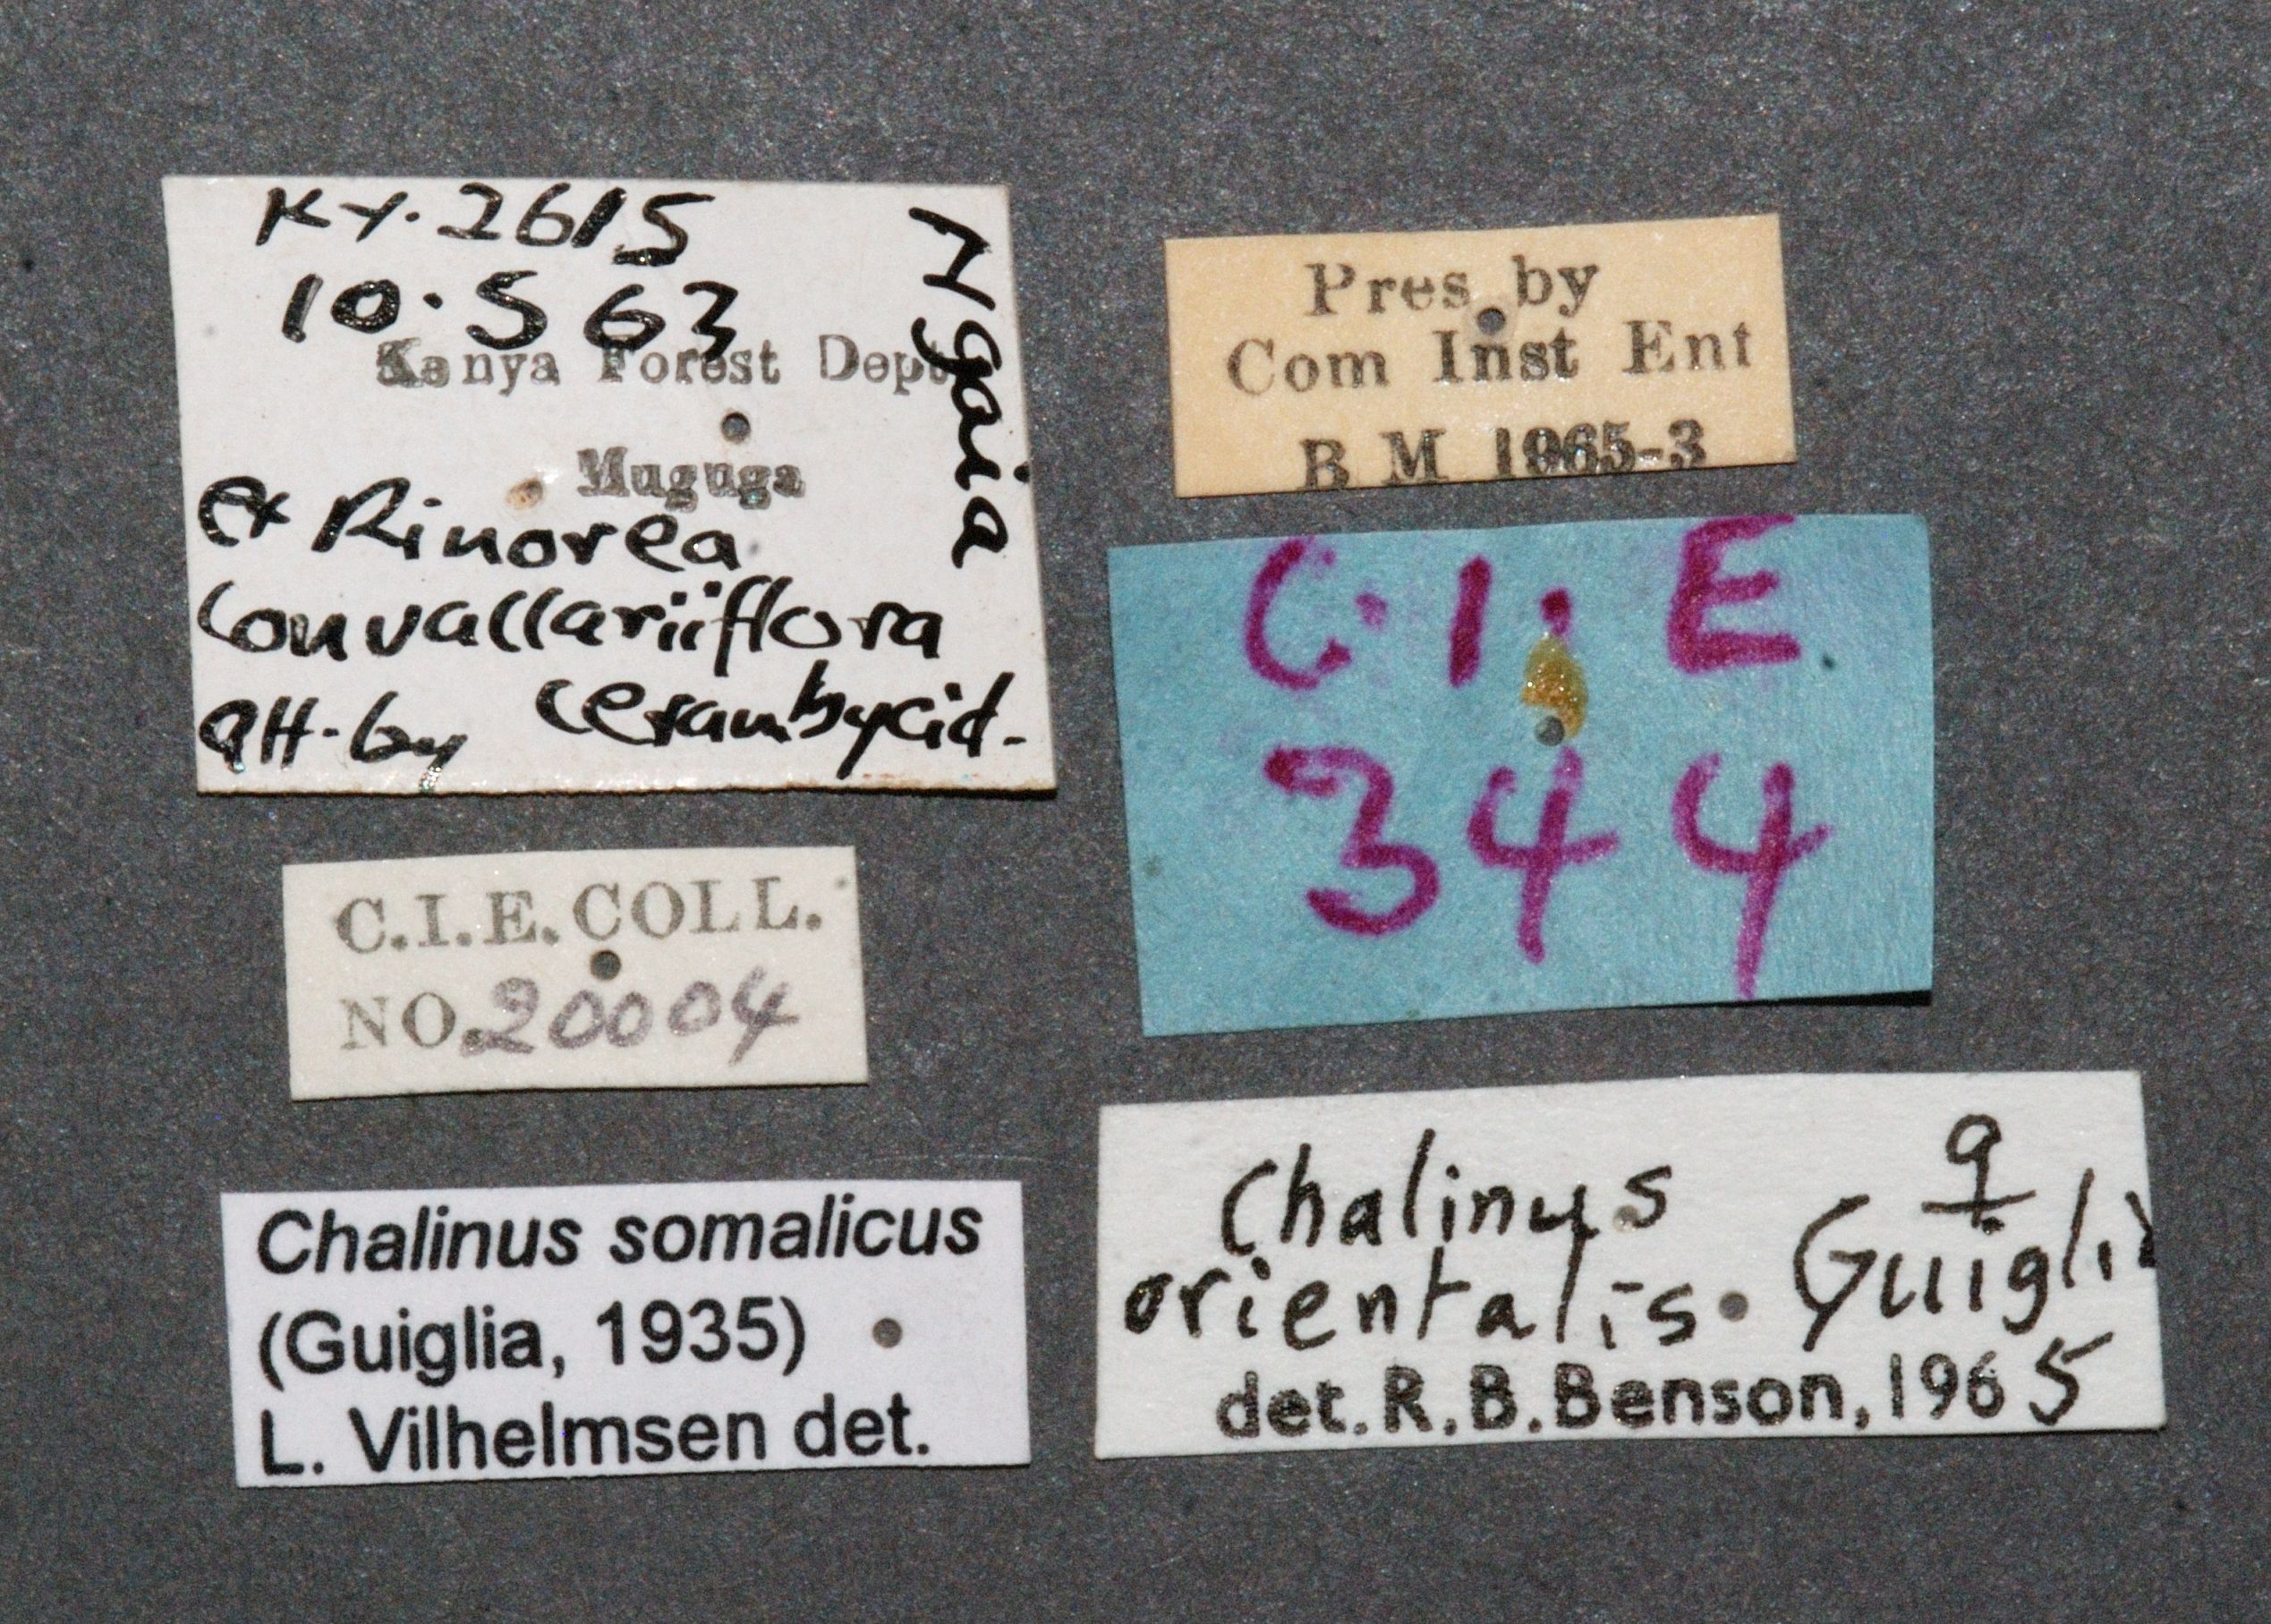 KY. 2615
10.5 63
Kenya Forest Dept
Muguga
ex Rinorea
Convallariiflora
att. by cerambycid.
Ngaia
Pres by
Com Inst Ent
B M 1965-3
C.I.E
344
C.I.E. COLL.
NO. 20004
Chalinus somalicus
(Guiglia, 1935)
L. Vilhelmsen det.
Chalinus ♀
orientalis. Guiglia
det. R. B. Benson, 1965